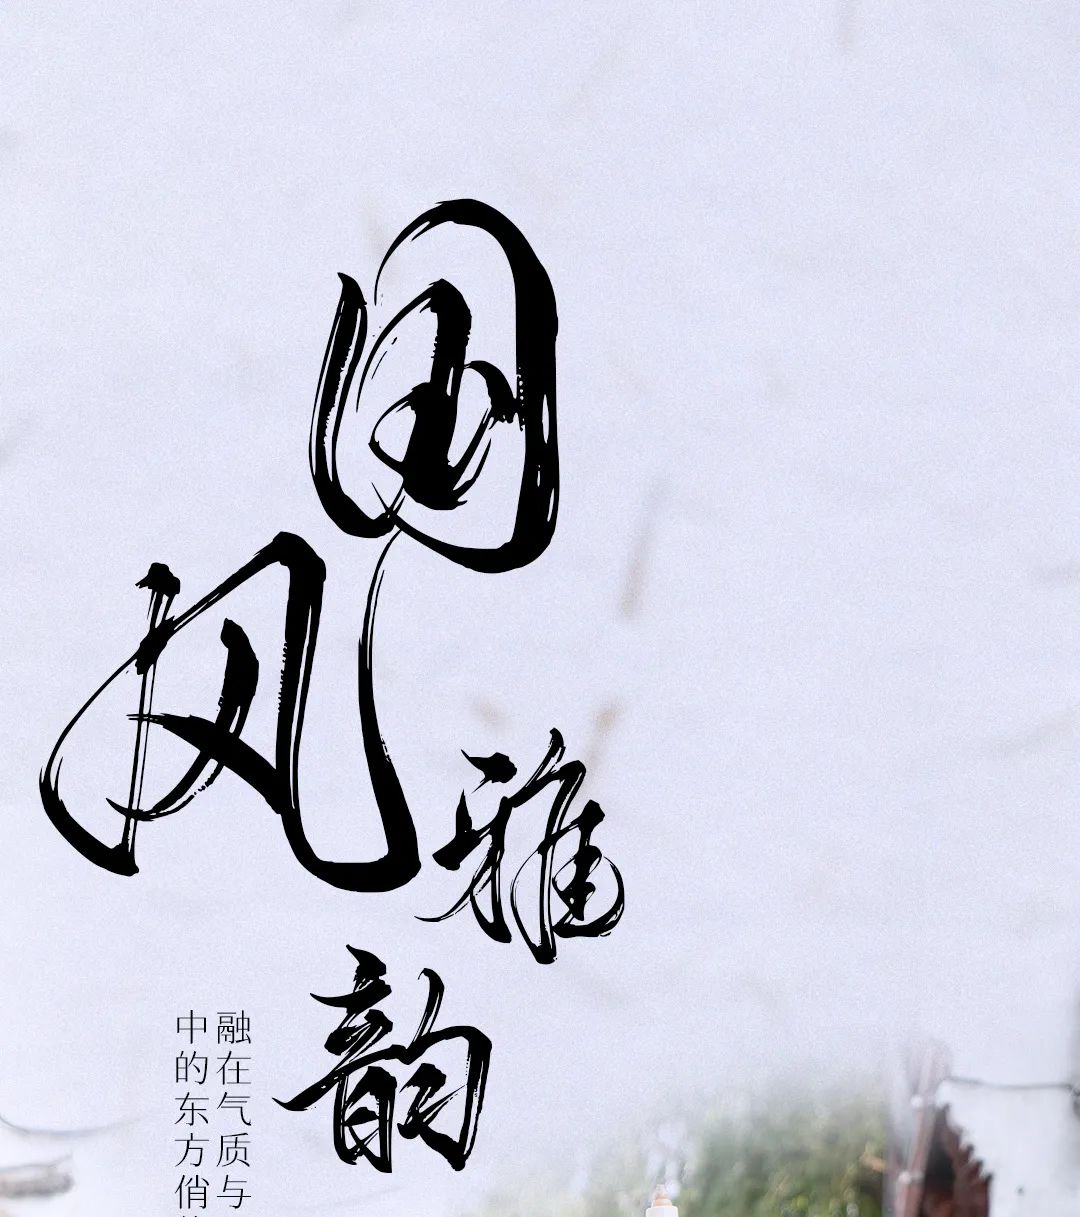 国风
雅韵
融在气质与
中的东方俏